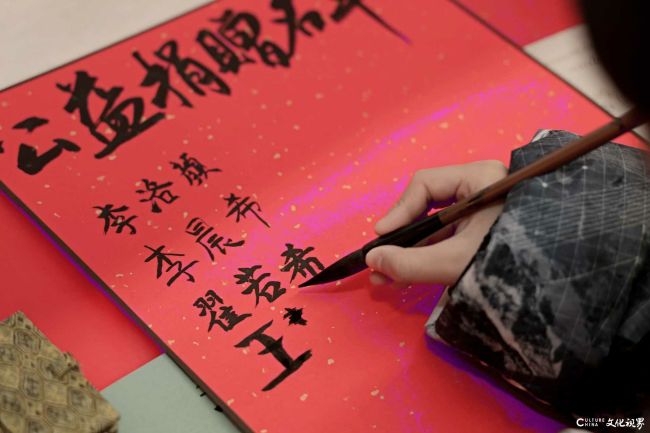 公益捐赠名
李洛
李晨希
翟若希
CULTURE
CHINA 文化视界